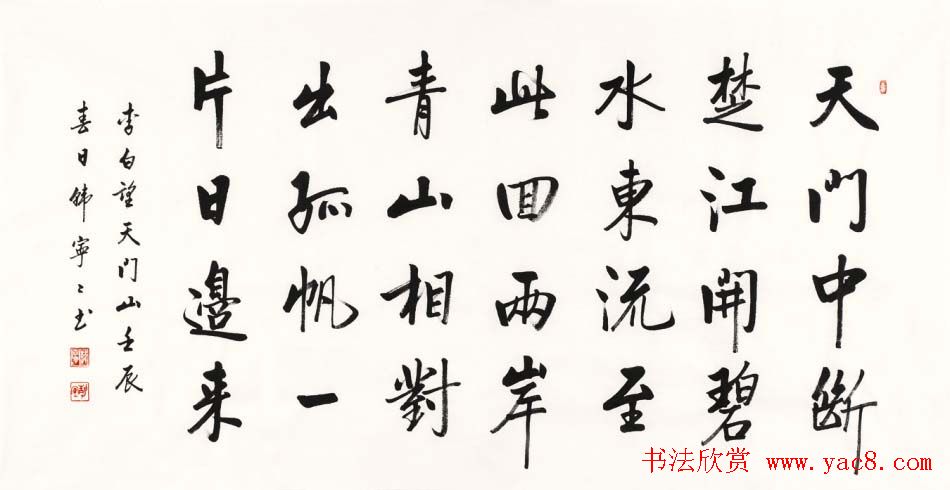 天門中斷
楚江開碧
水東流至
此回兩岸
青山相對
出孤帆一
片日邊来
李白望天门山壬辰
春日韩寧〻书
书法欣赏 www.yac8.com